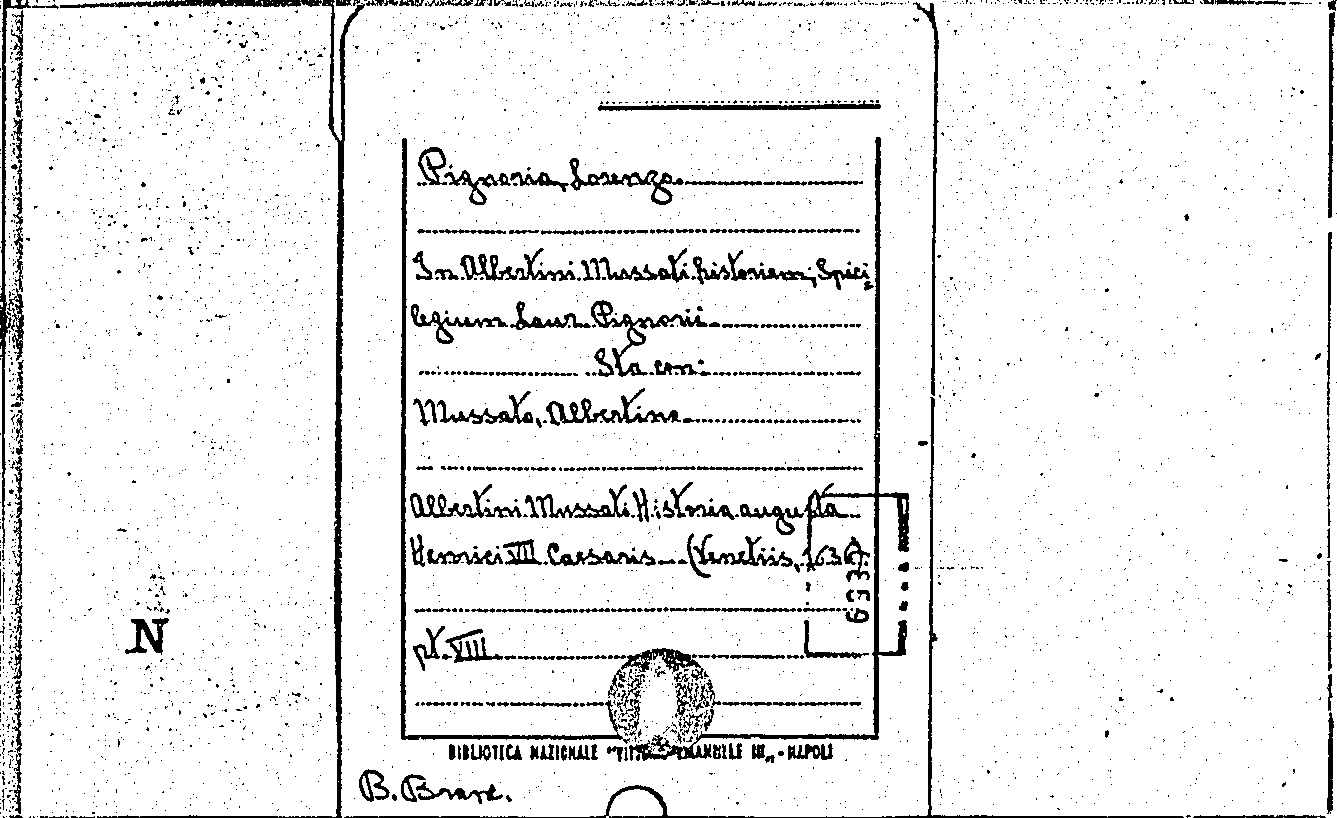 Pignoria, Lorenzo
In Albertini Mussati historiam, Spici
legium Laur. Pignorii
Sta con:
Mussato, Albertino
Albertini Mussati Historia augusta
Henrici VII Caesaris... (Venetiis, 1636).
pt. VIII
N
BIBLIOTECA NAZIONALE "VITTORIO EMANUELE III„ - NAPOLI
B. Branc.